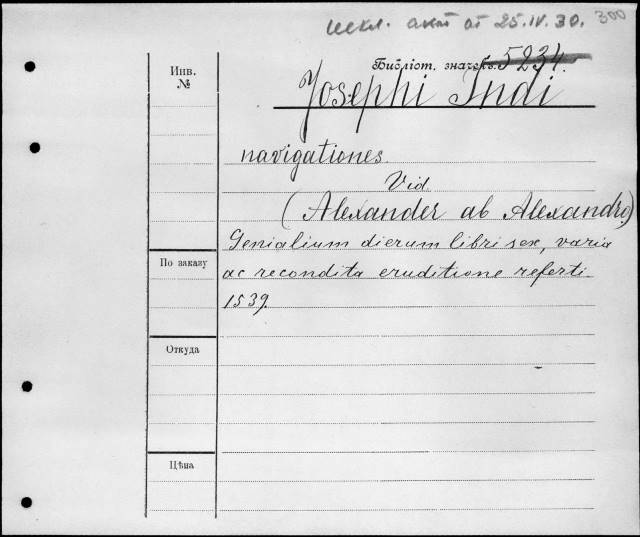 искл. акт от 25.IV.30. 300
Инв.
№
Библіот. значекъ 5234.
Josephi Indi
navigationes
Vid
(Alexander ab Alexandro)
Genialium dierum libri sex, varia
ac recondita eruditione referti
1539.
По заказу
Откуда
Цѣна